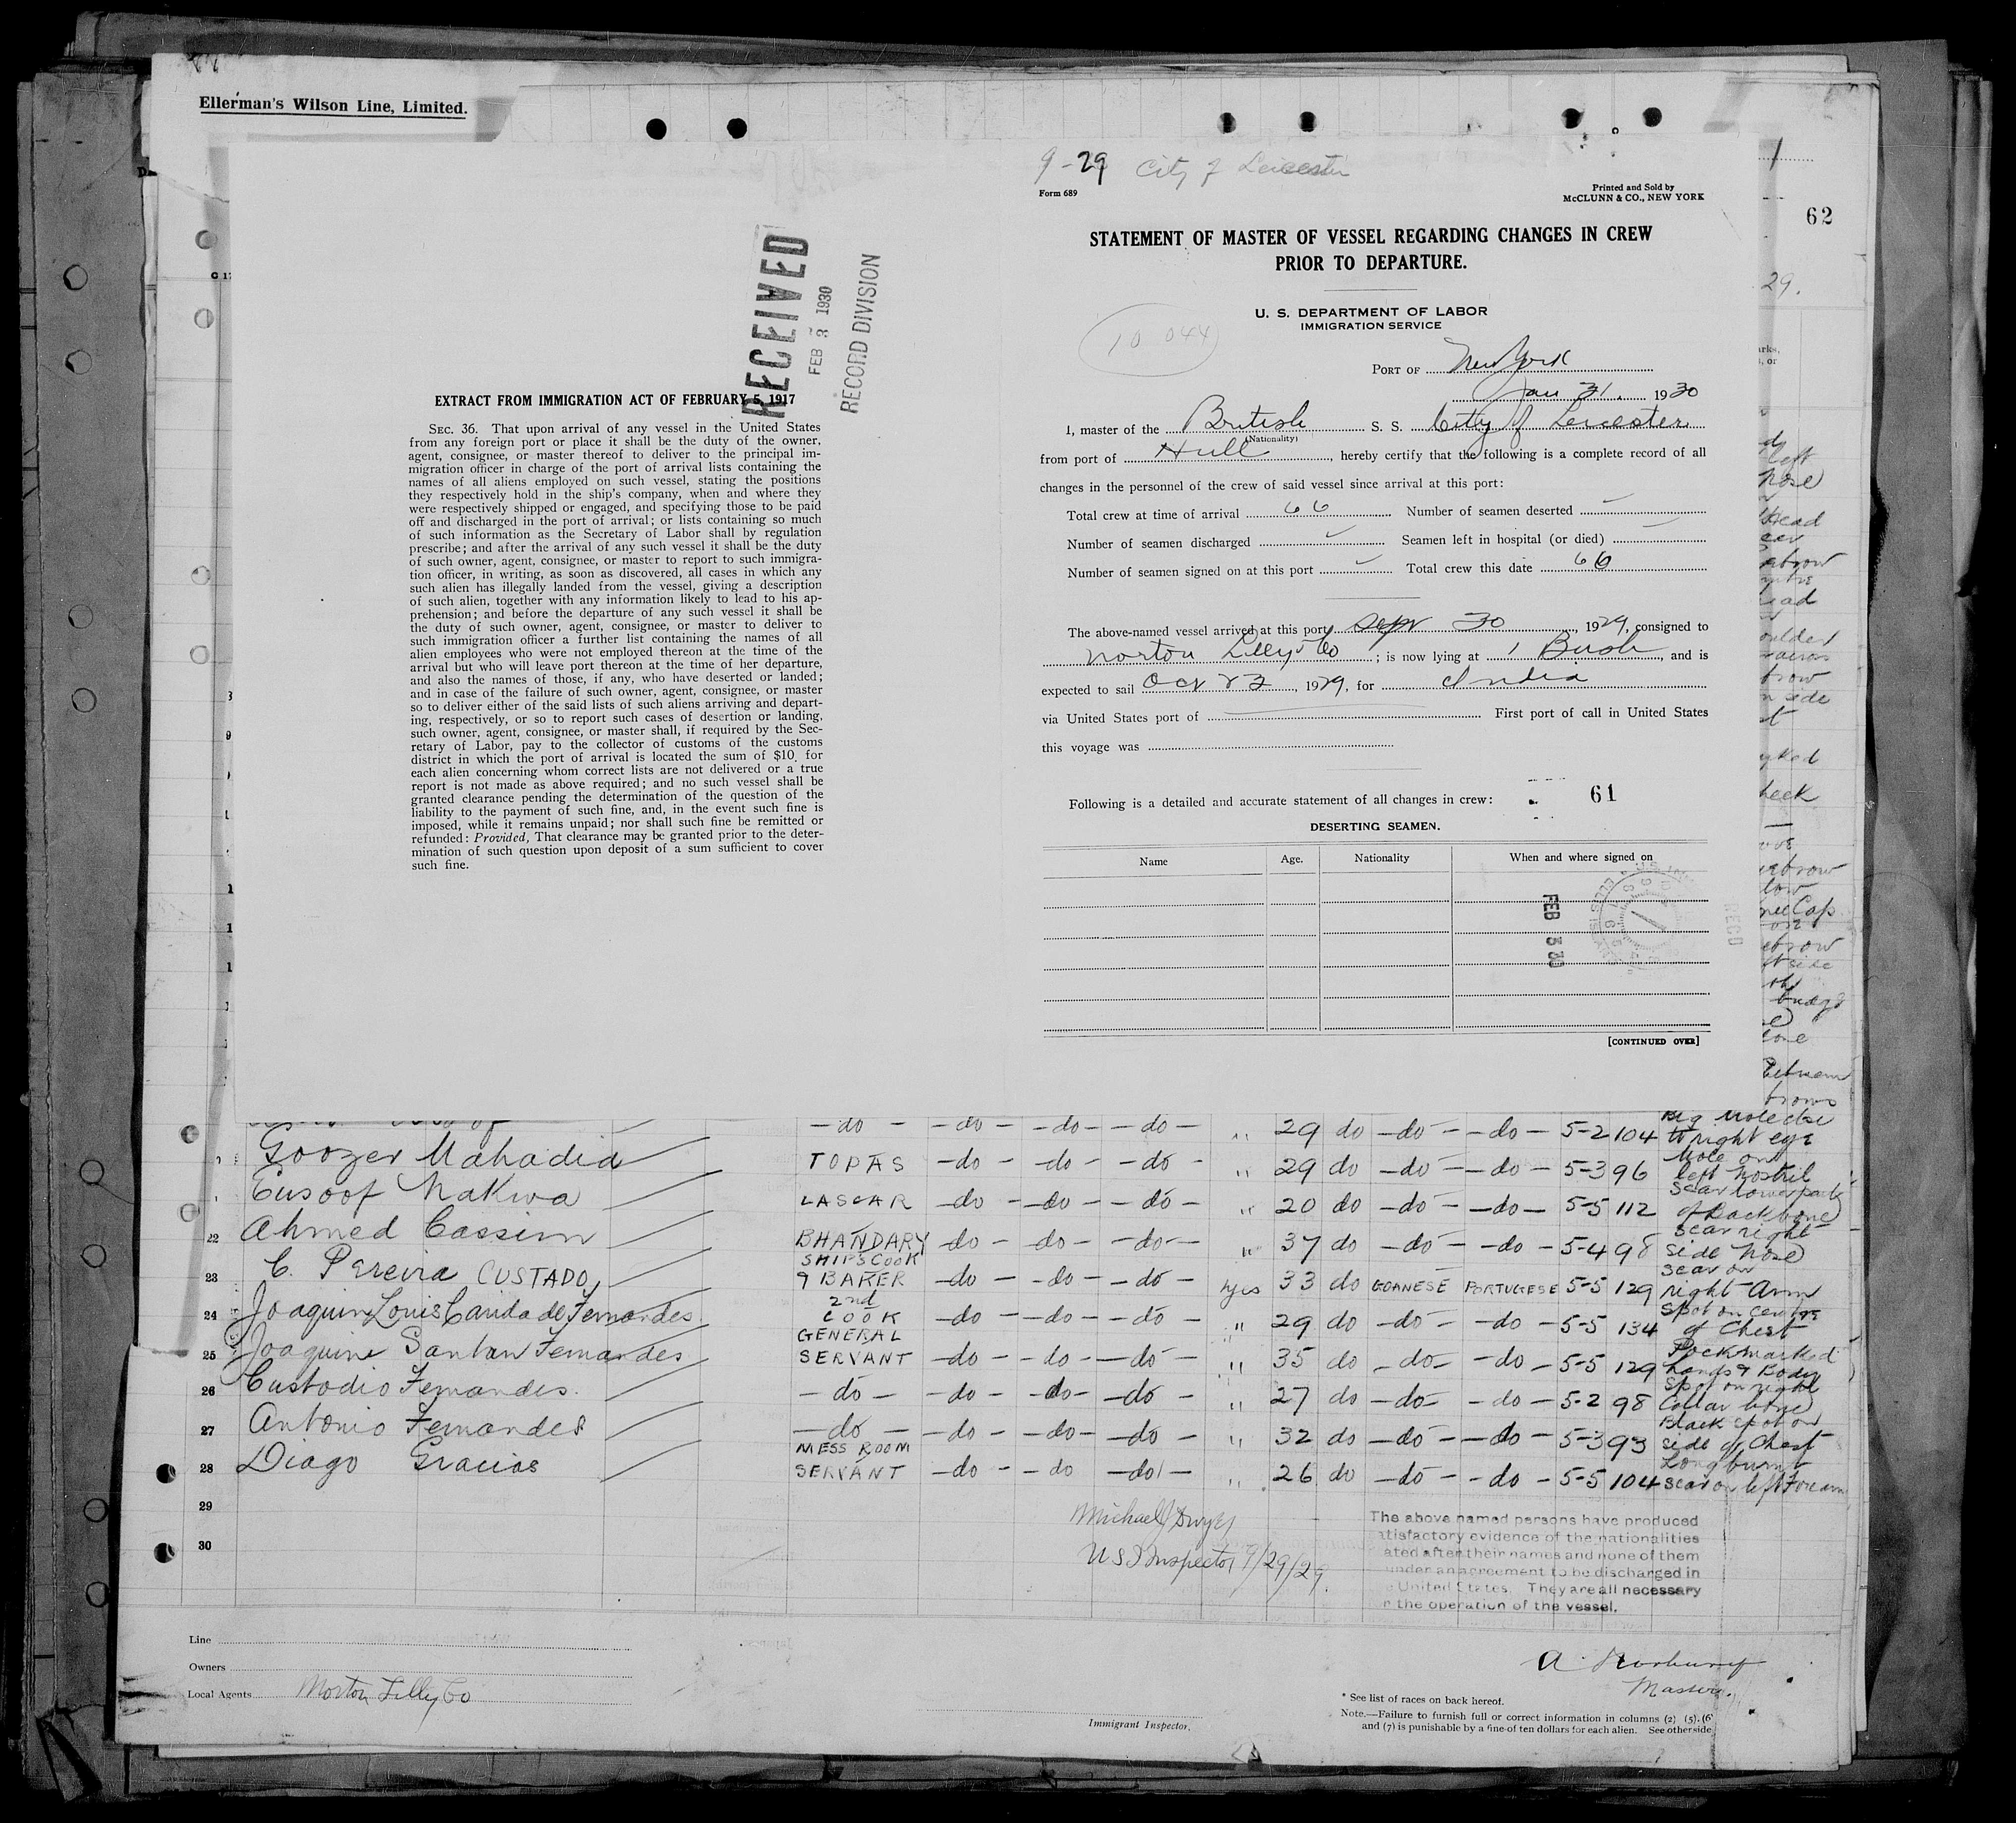 Ellerman's Wilson Line, Limited.
1
62
29.
RECEIVED
FEB 3 1930
RECORD DIVISION
EXTRACT FROM IMMIGRATION ACT OF FEBRUARY 5, 1917
SEC. 36. That upon arrival of any vessel in the United States
from any foreign port or place it shall be the duty of the owner,
agent, consignee, or master thereof to deliver to the principal im-
migration officer in charge of the port of arrival lists containing the
names of all aliens employed on such vessel, stating the positions
they respectively hold in the ship's company, when and where they
were respectively shipped or engaged, and specifying those to be paid
off and discharged in the port of arrival; or lists containing so much
of such information as the Secretary of Labor shall by regulation
prescribe; and after the arrival of any such vessel it shall be the duty
of such owner, agent, consignee, or master to report to such immigra-
tion officer, in writing, as soon as discovered, all cases in which any
such alien has illegally landed from the vessel, giving a description
of such alien, together with any information likely to lead to his ap-
prehension; and before the departure of any such vessel it shall be
the duty of such owner, agent, consignee, or master to deliver to
such immigration officer a further list containing the names of all
alien employees who were not employed thereon at the time of the
arrival but who will leave port thereon at the time of her departure,
and also the names of those, if any, who have deserted or landed;
and in case of the failure of such owner, agent, consignee, or master
so to deliver either of the said lists of such aliens arriving and depart-
ing, respectively, or so to report such cases of desertion or landing,
such owner, agent, consignee, or master shall, if required by the Sec-
retary of Labor, pay to the collector of customs of the customs
district in which the port of arrival is located the sum of $10 for
each alien concerning whom correct lists are not delivered or a true
report is not made as above required; and no such vessel shall be
granted clearance pending the determination of the question of the
liability to the payment of such fine, and, in the event such fine is
imposed, while it remains unpaid; nor shall such fine be remitted or
refunded: Provided, That clearance may be granted prior to the deter-
mination of such question upon deposit of a sum sufficient to cover
such fine.
9-29 City of Leicester
Form 689
Printed and Sold by
McCLUNN & CO., NEW YORK
STATEMENT OF MASTER OF VESSEL REGARDING CHANGES IN CREW
PRIOR TO DEPARTURE.
10 044
U. S. DEPARTMENT OF LABOR
IMMIGRATION SERVICE
PORT OF New York
Jan 31. 1930
I, master of the British S. S. City of Leicester
(Nationality)
from port of Hull, hereby certify that the following is a complete record of all
changes in the personnel of the crew of said vessel since arrival at this port:
Total crew at time of arrival 66 Number of seamen deserted
Number of seamen discharged Seamen left in hospital (or died)
Number of seamen signed on at this port Total crew this date 66
The above-named vessel arrived at this port Sept 30, 1929, consigned to
Norton Lilly & Co; is now lying at 1 Bush, and is
expected to sail Oct 22, 1929, for India
via United States port of First port of call in United States
this voyage was
Following is a detailed and accurate statement of all changes in crew: 61
DESERTING SEAMEN.
Name Age. Nationality When and where signed on
FEB 3 30
RECD
[CONTINUED OVER]
-do- -do- -do- -do- " 29 do -do- -do- 5-2 104 Big mole close to right eye
Goozer Mahadia TOPAS -do- -do- -do- " 29 do -do- -do- 5-3 96 Mole on left nostril
Eusoof Nakwa LASCAR -do- -do- -do- " 20 do -do- -do- 5-5 112 Scar lower part of Backbone
22 Ahmed Cassim BHANDARY -do- -do- -do- " 37 do -do- -do- 5-4 98 Scar right side nose
23 C. Pereira CUSTADO SHIPS COOK & BAKER -do- -do- -do- yes 33 do GOANESE PORTUGESE 5-5 129 Scar on right Arm
24 Joaquim Louis Carida de Fernandes 2nd COOK -do- -do- -do- " 29 do -do- -do- 5-5 134 Spot on centre of Chest
25 Joaquim Santan Fernandes GENERAL SERVANT -do- -do- -do- " 35 do -do- -do- 5-5 129 Pockmarked hands & Body
26 Custodio Fernandes. -do- -do- -do- -do- " 27 do -do- -do- 5-2 98 Spot on right Collar bone
27 Antonio Fernandes -do- -do- -do- -do- " 32 do -do- -do- 5-3 93 Black spot on side of Chest
28 Diago Gracias MESS ROOM SERVANT -do- -do -do- " 26 do -do- -do- 5-5 104 Long burnt scar on left Forearm
29
30
Michael J Dwyer
US Inspector 9/29/29.
The above named persons have produced
atisfactory evidence of the nationalities
ated after their names and none of them
under an agreement to be discharged in
e United States. They are all necessary
r the operation of the vessel.
Line
Owners
Local Agents Norton Lilly Co
Immigrant Inspector.
Master.
* See list of races on back hereof.
Note.—Failure to furnish full or correct information in columns (2) (5), (6
and (7) is punishable by a fine of ten dollars for each alien. See other side